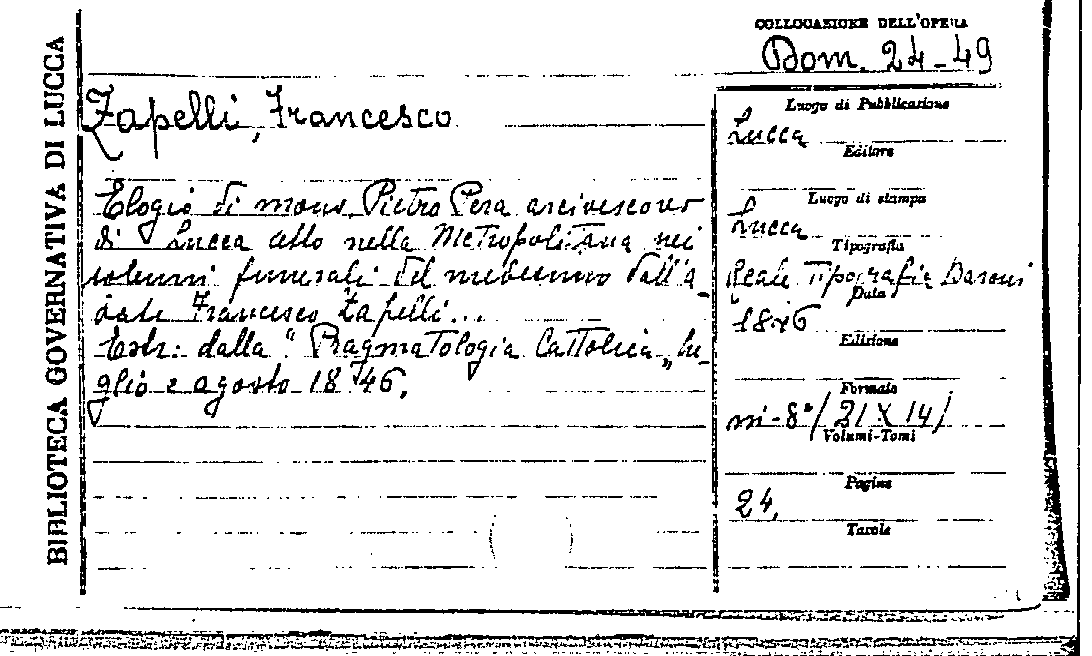 BIBLIOTECA GOVERNATIVA DI LUCCA
COLLOCAZIONE DELL'OPERA
Dom. 24-49
Zapelli, Francesco
Elogio di mons. Pietro Pera arcivescovo
di Lucca detto nella Metropolitana nei
solenni funerali del medesimo dall'a-
bate Francesco Zapelli...
Estr: dalla "Pragmatologia Cattolica„ lu-
glio e agosto 1846.
Luogo di Pubblicazione
Lucca
Editore
Luogo di stampa
Lucca
Tipografia
Reale Tipografia Baroni
Data
1846
Edizione
Formato
in-8°/21 X 14/
Volumi-Tomi
Pagine
24.
Tavole